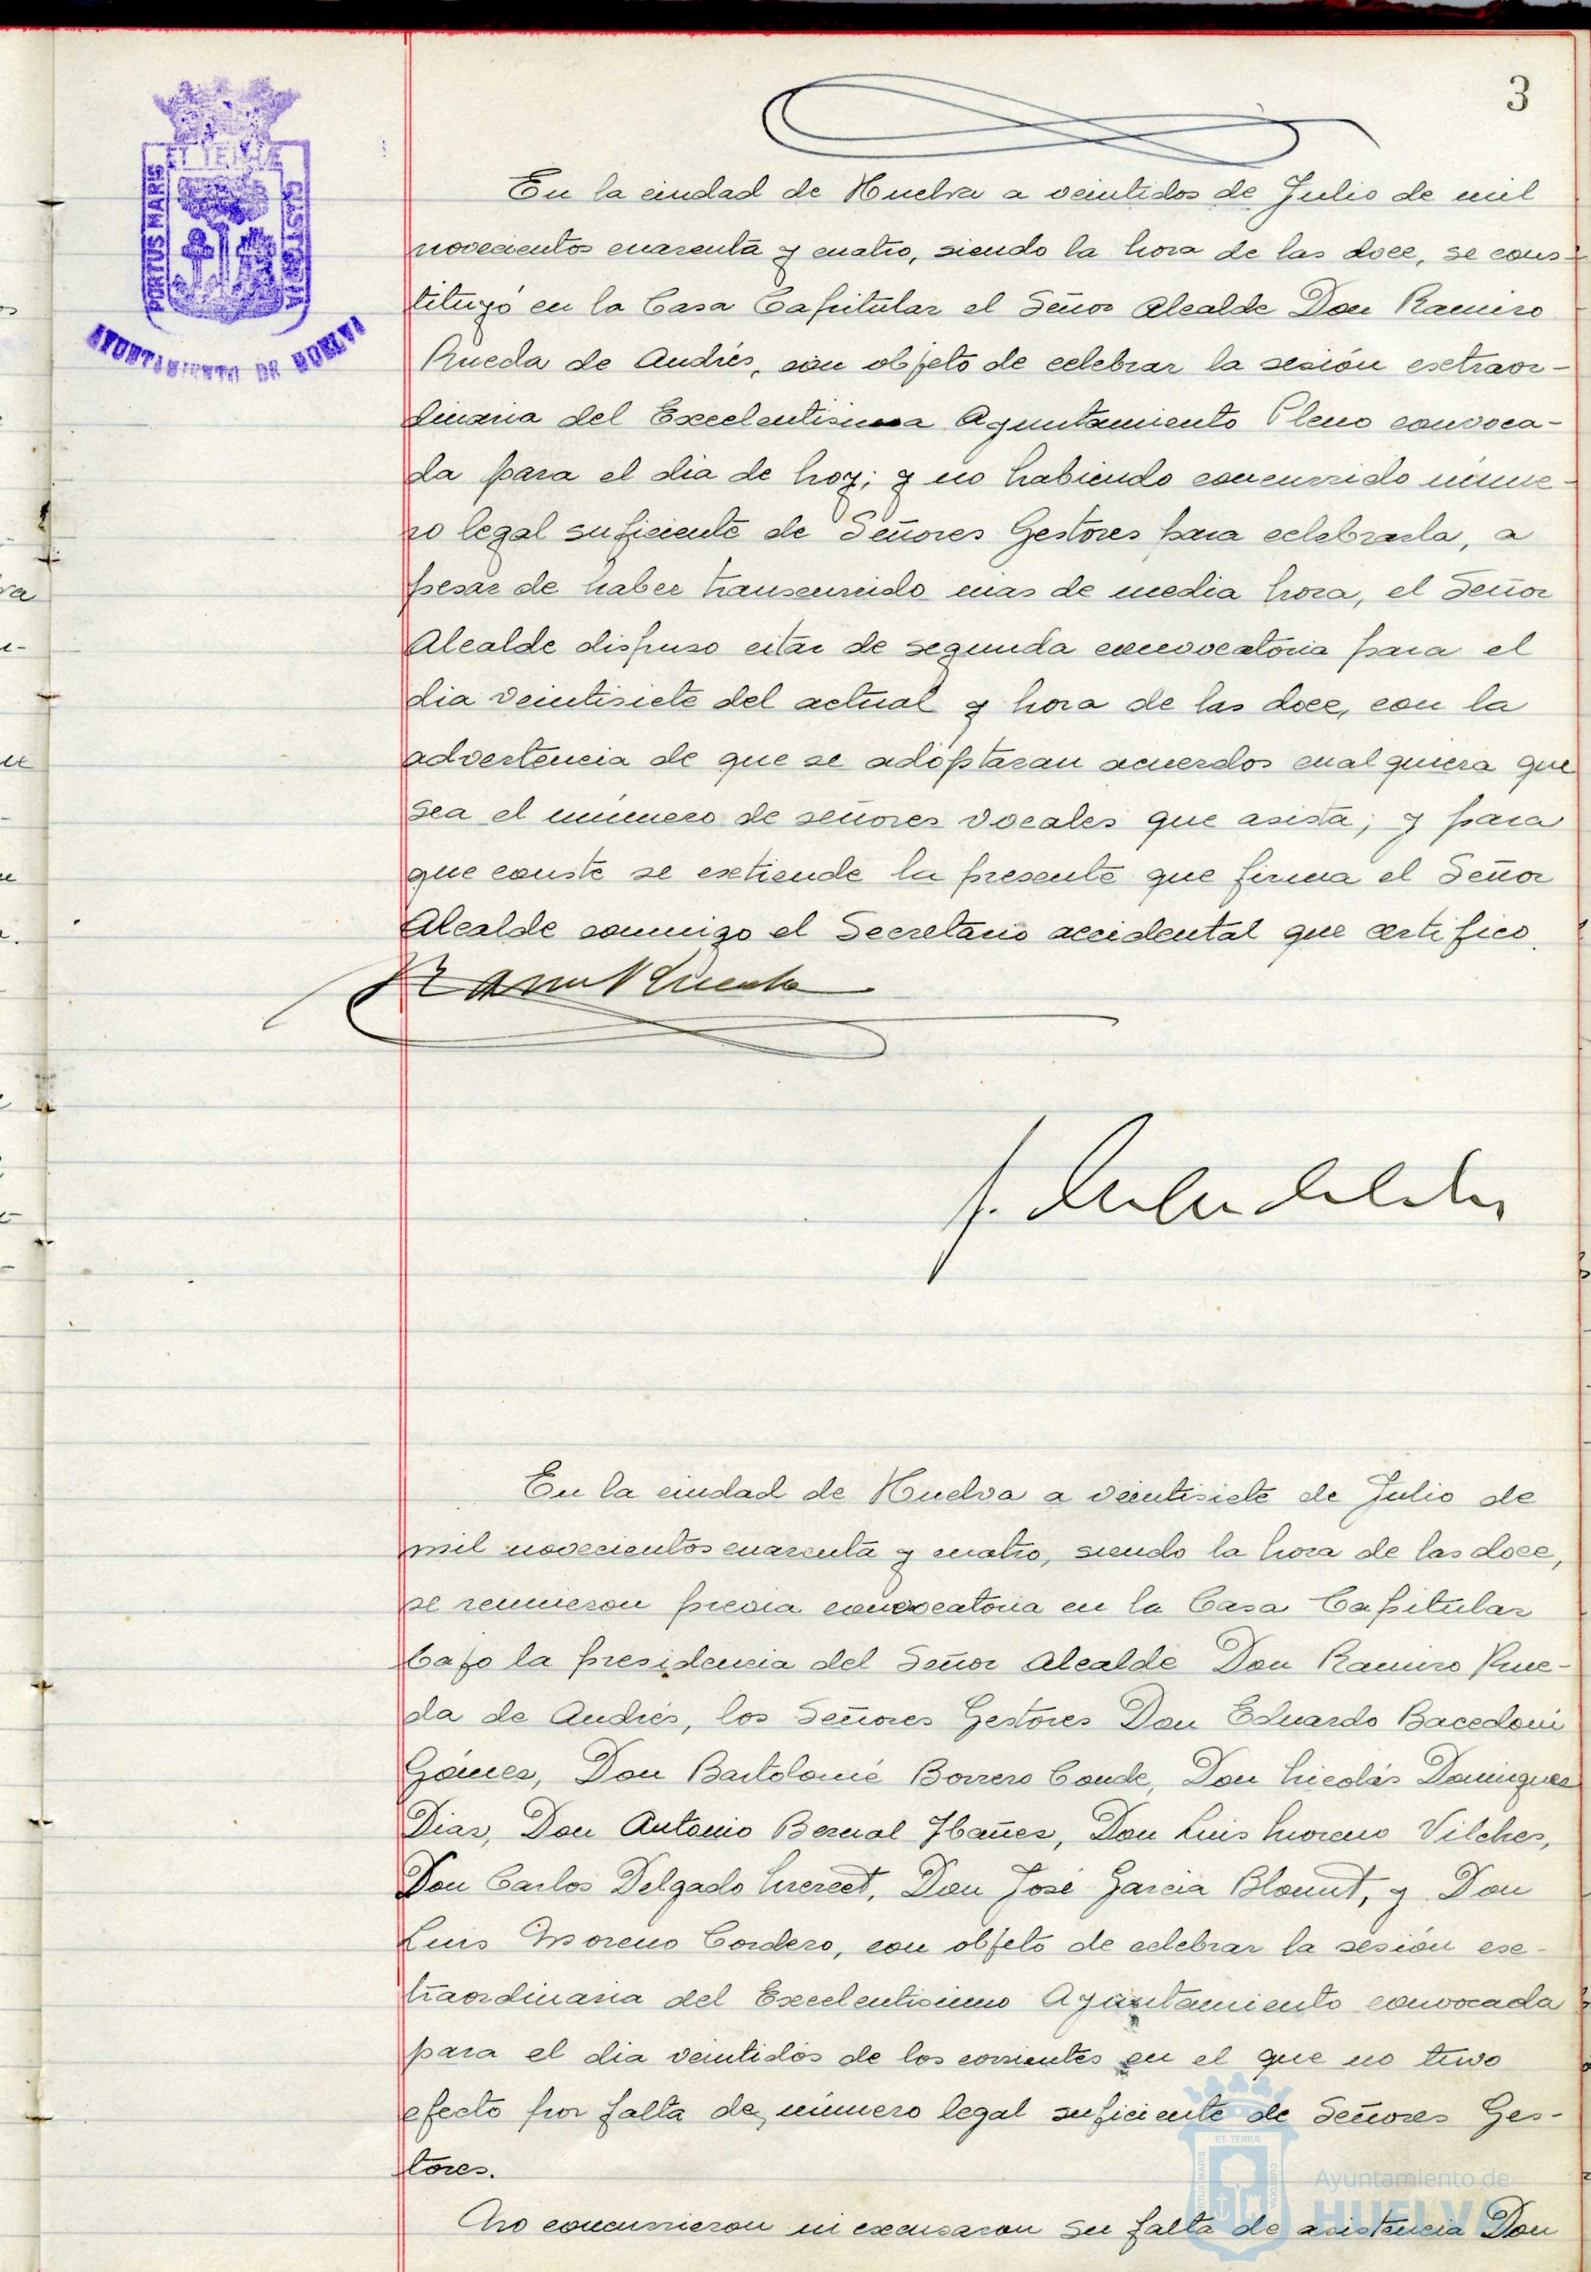 3
ET TERRÆ
PORTUS MARIS
CUSTODIA
AYUNTAMIENTO DE HUELVA
En la ciudad de Huelva a veintidos de Julio de mil
novecientos cuarenta y cuatro, siendo la hora de las doce, se cons-
tituyó en la Casa Capitular el Señor Alcalde Don Ramiro
Rueda de Andrés, con objeto de celebrar la sesión extraor-
dinaria del Excelentisima Ayuntamiento Pleno convoca-
da para el dia de hoy; y no habiendo concurrido núme-
ro legal suficiente de Señores Gestores para celebrarla, a
pesar de haber transcurrido mas de media hora, el Señor
Alcalde dispuso citar de segunda convocatoria para el
dia veintisiete del actual y hora de las doce, con la
advertencia de que se adoptaran acuerdos cualquiera que
sea el número de señores vocales que asista; y para
que conste se extiende la presente que firma el Señor
Alcalde conmigo el Secretario accidental que certifico.
En la ciudad de Huelva a veintisiete de Julio de
mil novecientos cuarenta y cuatro, siendo la hora de las doce,
se reunieron previa convocatoria en la Casa Capitular
bajo la presidencia del Señor Alcalde Don Ramiro Rue-
da de Andrés, los Señores Gestores Don Eduardo Bacedoni
Gómez, Don Bartolomé Borrero Conde, Don Nicolás Dominguez
Diaz, Don Antonio Bernal Ibañez, Don Luis Moreno Vilches,
Don Carlos Delgado, Don José Garcia Blount, y Don
Luis Moreno Cordero, con objeto de celebrar la sesión ex-
traordinaria del Excelentisimo Ayuntamiento convocada
para el dia veintidós de los corrientes en el que no tuvo
efecto por falta de número legal suficiente de Señores Ges-
tores.
No concurrieron ni excusaron su falta de asistencia Don
ET TERRÆ
Ayuntamiento de
HUELVA